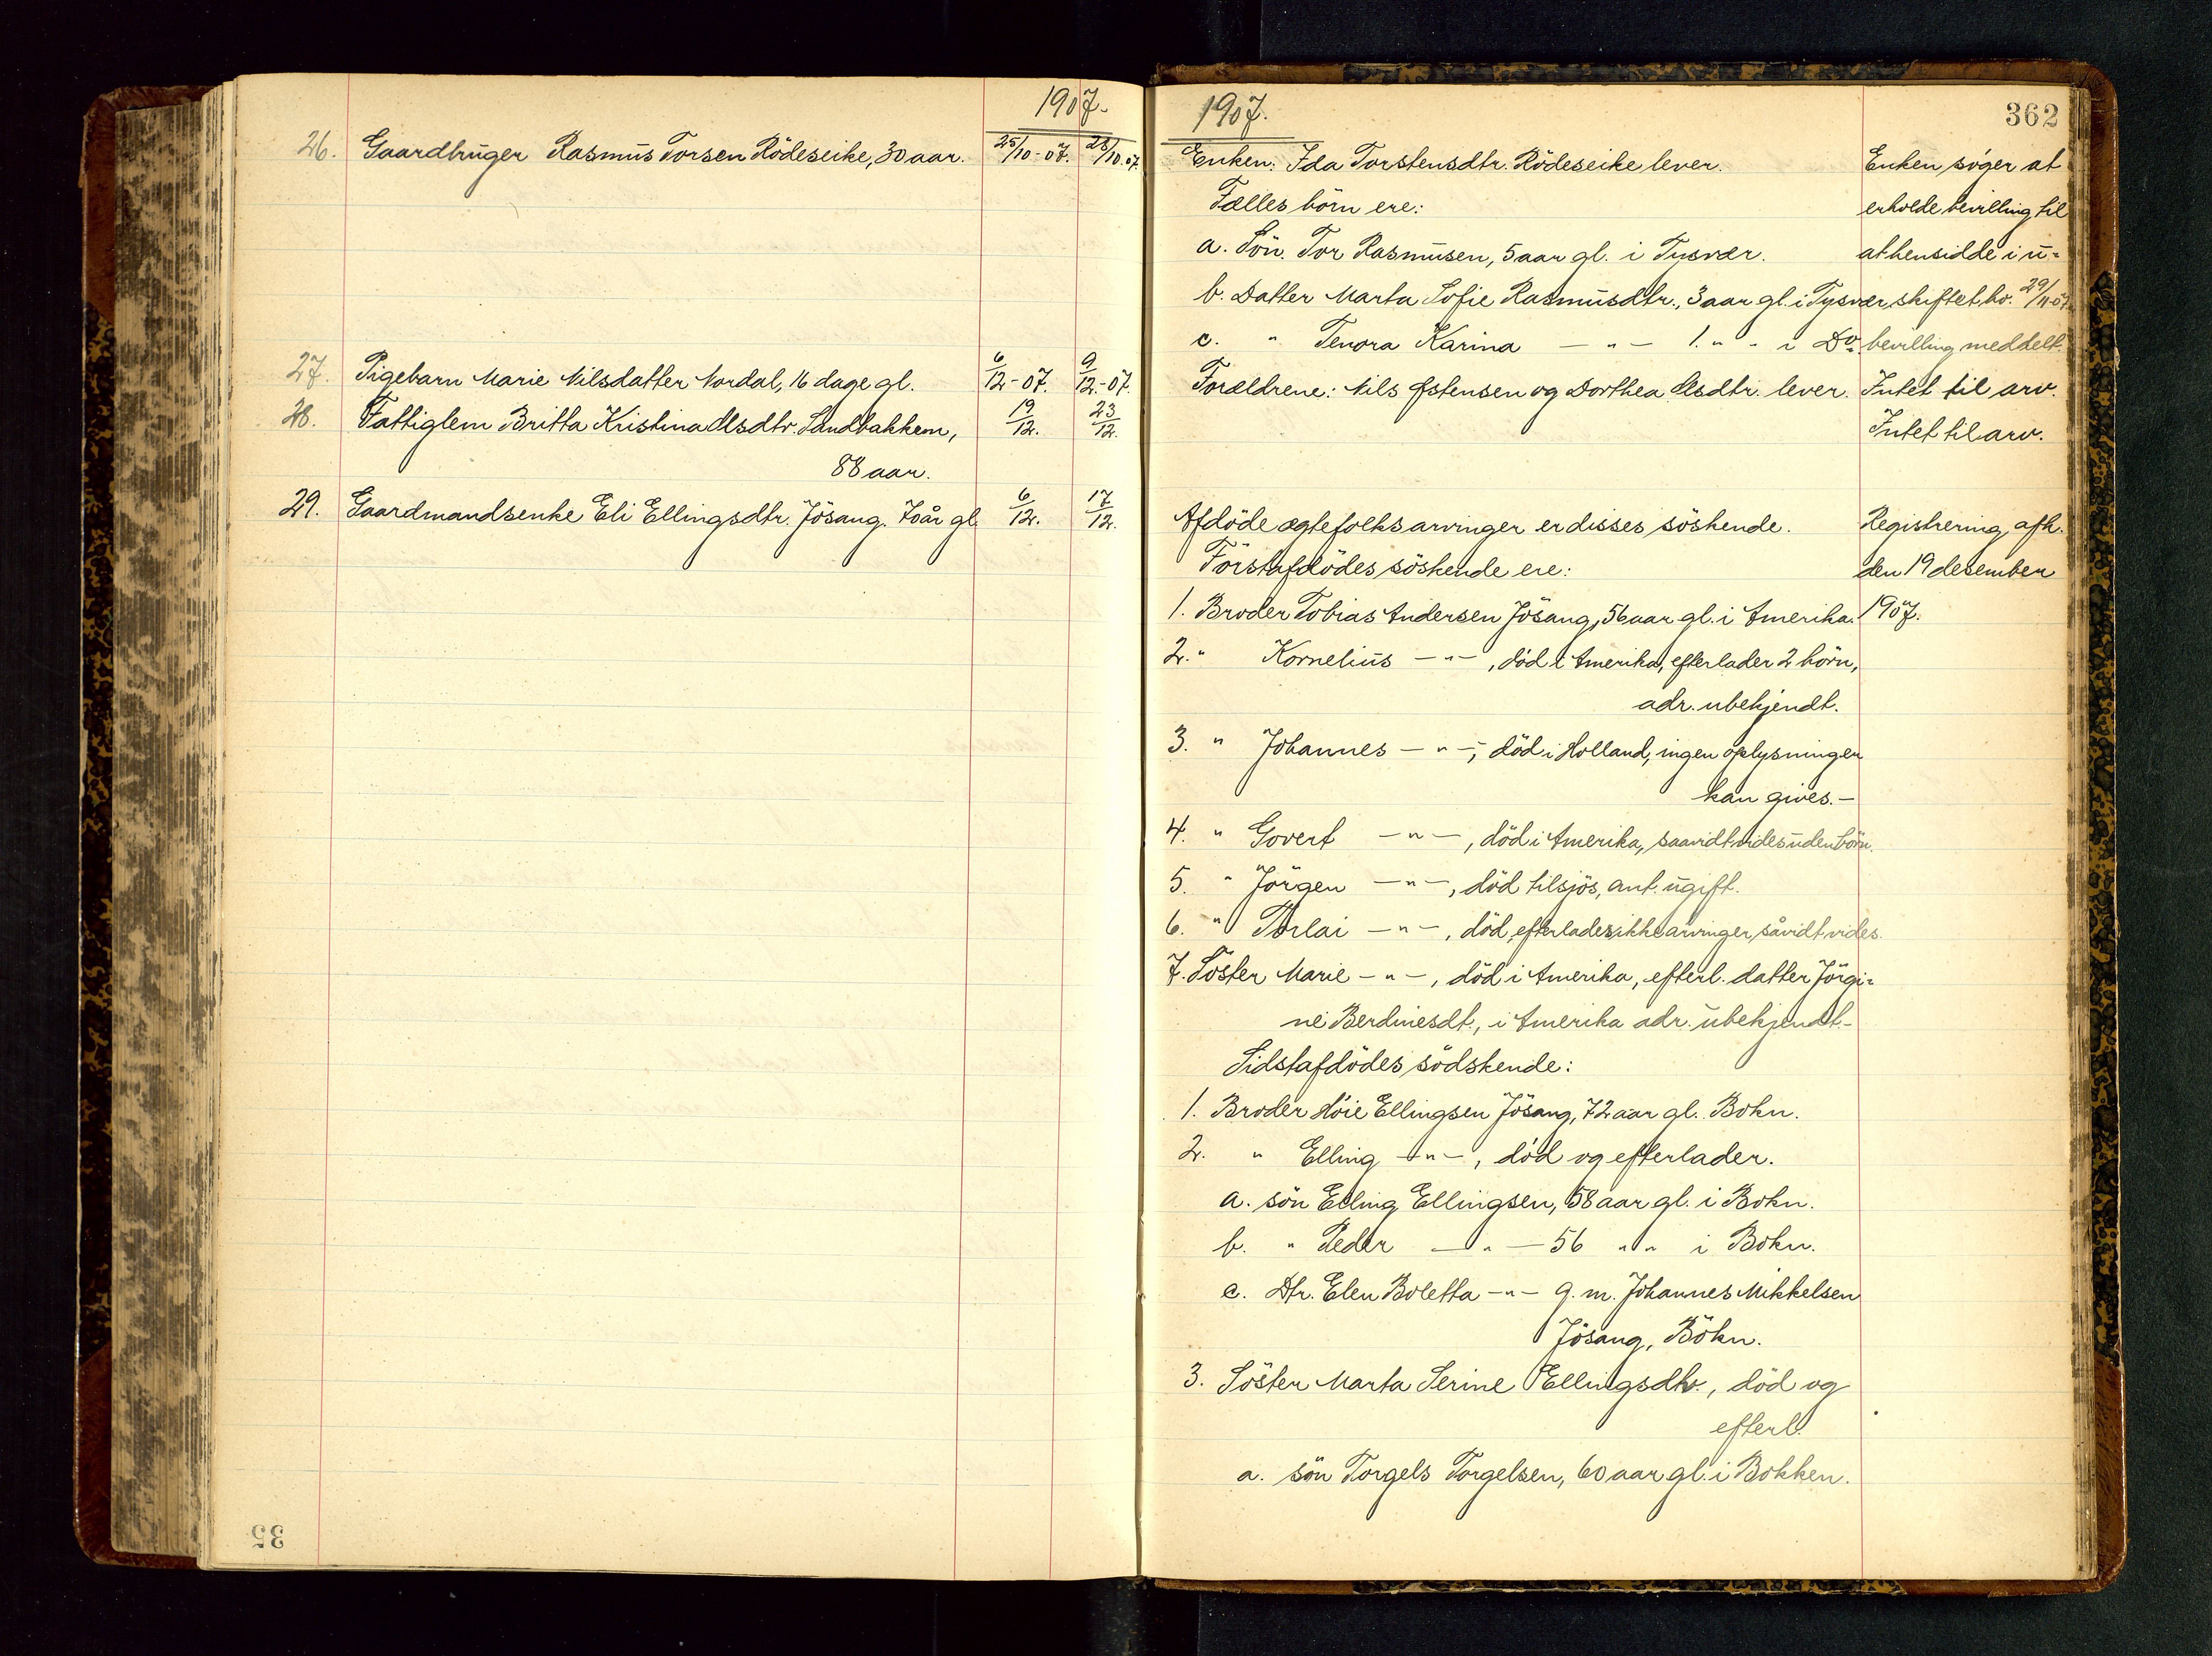 1907.
26. Gaardbruger Rasmus Torsen Rödeseike, 30 aar. 25/10-07. 28/10.07.
27. Pigebarn Marie Nilsdatter Nordal, 16 dage gl. 6/12-07. 9/12.-07.
28. Fattiglem Britta Kristina Olsdtr. Sandbakken, 19/12. 23/12.
88 aar.
29. Gaardmandsenke Eli Ellingsdtr. Jösang. 70 år gl. 6/12. 17/12.
35
1907. 362
Enken: Ida Torstensdtr. Rödeseike lever. Enken söger at
Fælles börn ere: erholde bevilling til
a. Sön. Tor Rasmusen, 5 aar gl. i Tysvær. at hensidde i u=
b. Datter Marta Sofie Rasmusdtr., 3 aar gl. i Tysvær, skiftet bo. 29/11-07
c. " Tenora Karina — " — 1. " " i Do. bevilling meddelt.
Forældrene: Nils Østensen og Dorthea Olsdtr. lever. Intet til arv.
Intet til arv.
Afdöde ægtefolks arvinger er disses söskende. Registrering afh.
Förstafdödes söskende ere: den 19 desember
1. Broder Tobias Andersen Jösang, 56 aar gl. i Amerika. 1907.
2. " Kornelius — " —, död i Amerika, efterlader 2 börn,
adr. ubekjendt.
3. " Johannes — " —, död i Holland, ingen oplysninger
kan gives. —
4. " Govert — " —, död i Amerika, saavidt vides uden börn.
5. " Jörgen — " —, död tilsjös, ant. ugift.
6. " Torlai — " —, död, efterlader ikke arvinger såvidt vides.
7. Söster Marie — " —, död i Amerika, efterl. datter Jörgi=
ne Berdinesdt., i Amerika adr. ubekjendt. —
Sidstafdödes södskende:
1. Broder Höie Ellingsen Jösang, 72 aar gl. Bokn.
2. " Elling — " —, död og efterlader.
a. sön Elling Ellingsen, 58 aar gl. i Bokn.
b. " Peder — " — 56 " " i Bokn.
c. Dtr. Elen Boletta — " — g. m. Johannes Mikkelsen
Jösang, Bokn.
3. Söster Marta Serine Ellingsdtr., död og
efterl.
a. sön Torgels Torgelsen, 60 aar gl. i Bokken.